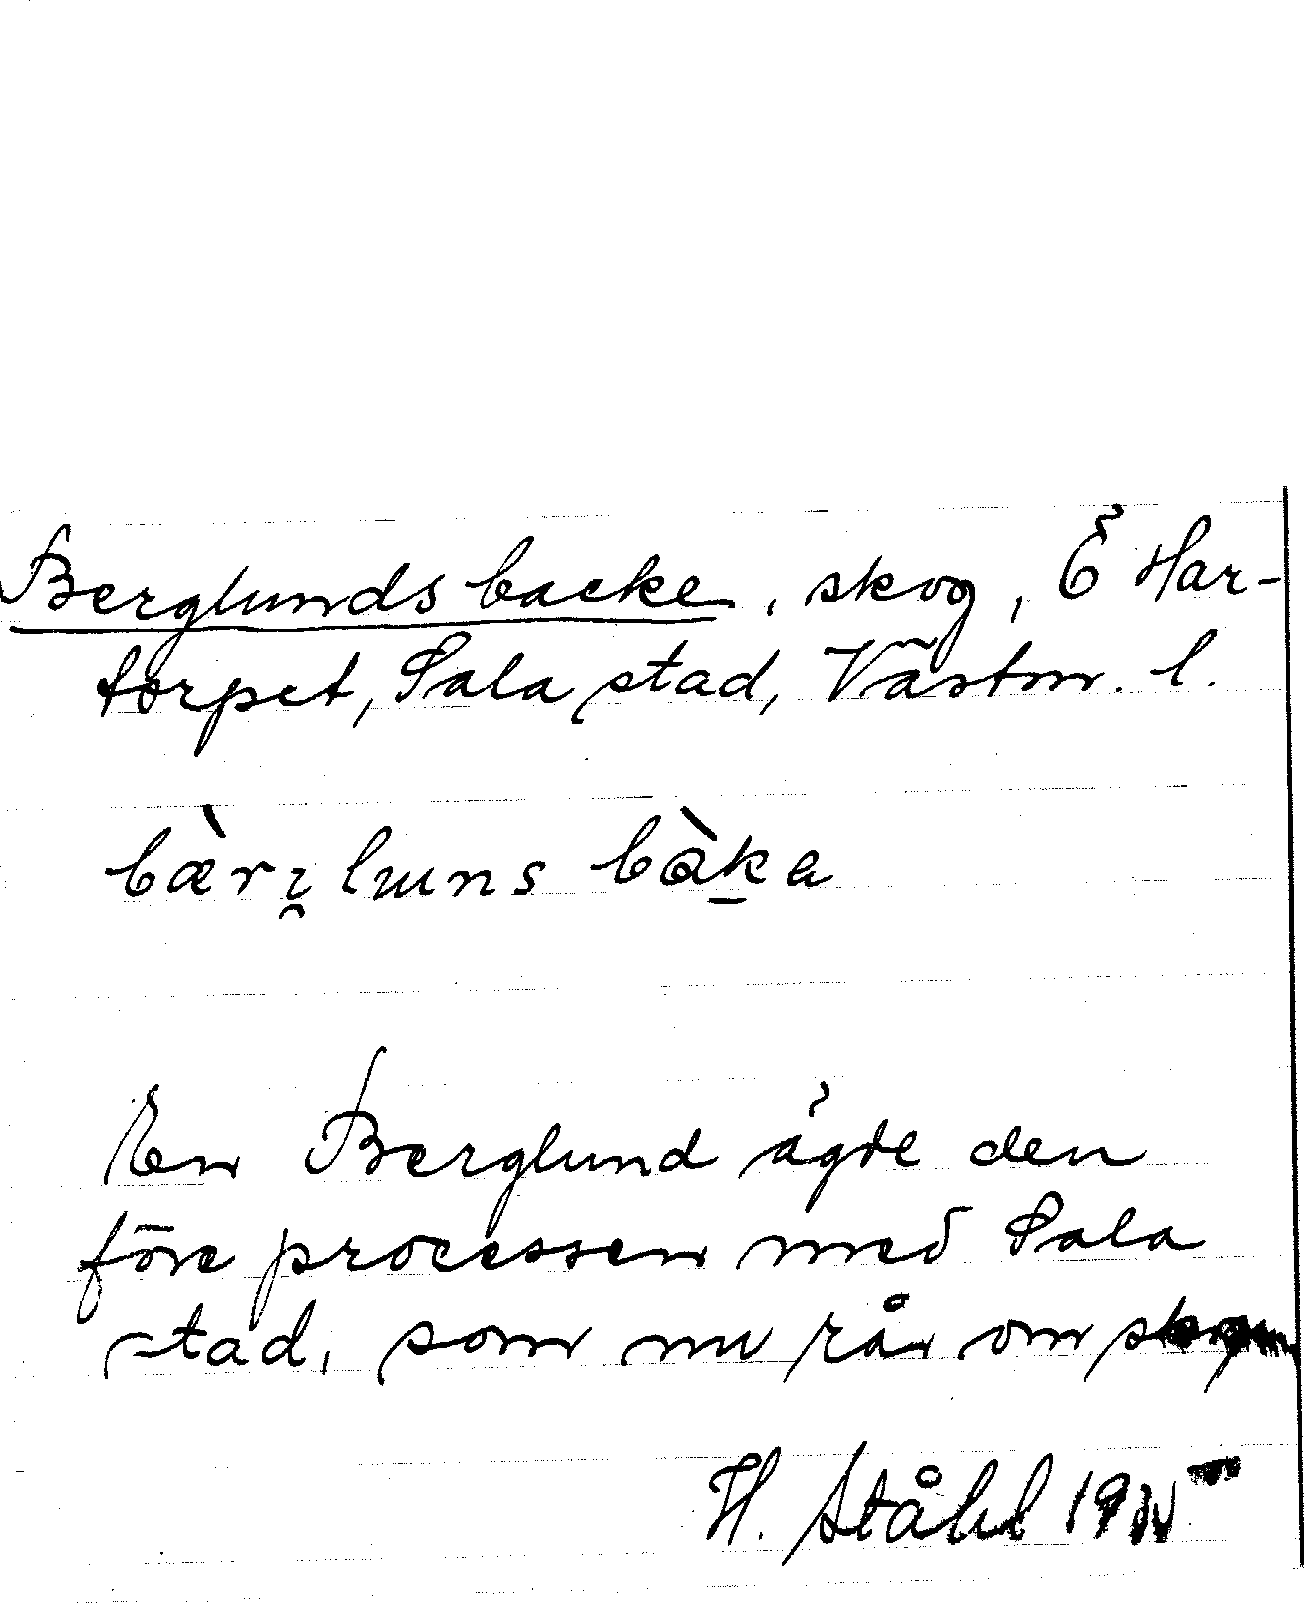 Berglunds backe, skog, Ö Har-
torpet, Sala stad, Västm. l.
bær lɯns bàka
En Berglund ägde den
före processen med Sala
stad, som nu rår om skogen
H. Ståhl